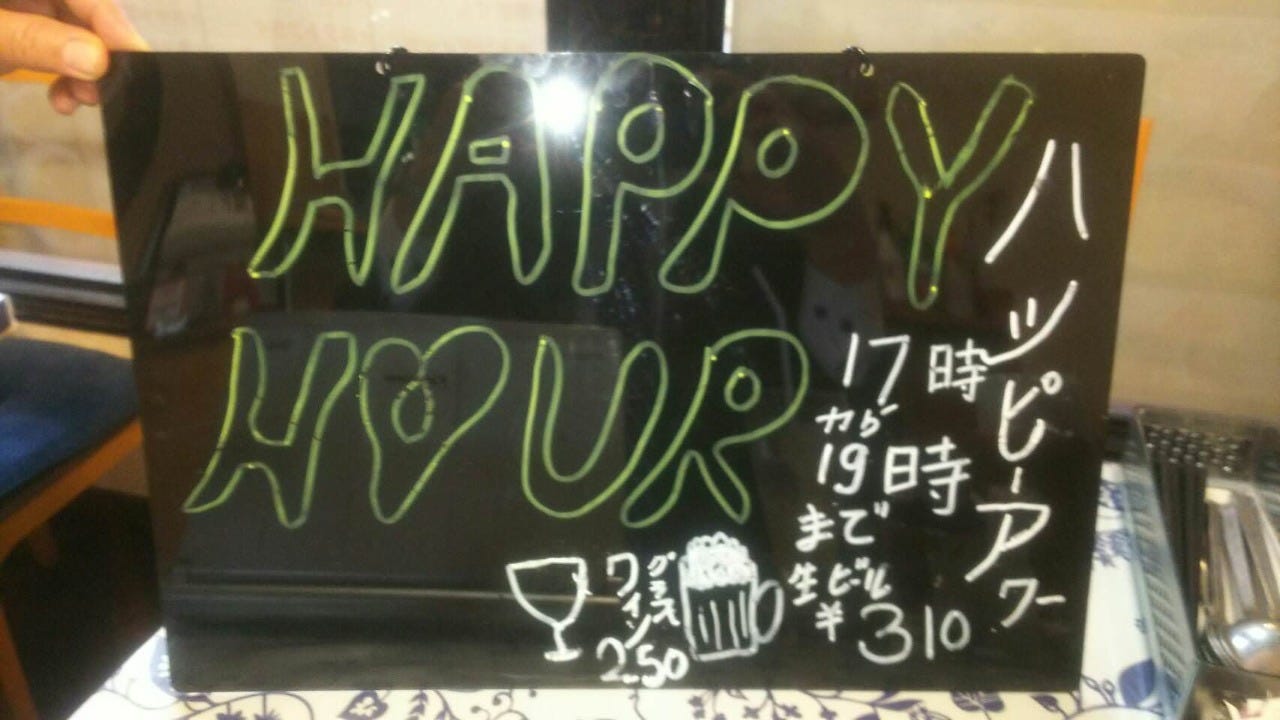 HAPPY
HOUR
ハッピーアワー
17時
カラ
19時
まで
生ビール
¥310
グラス
ワイン
250